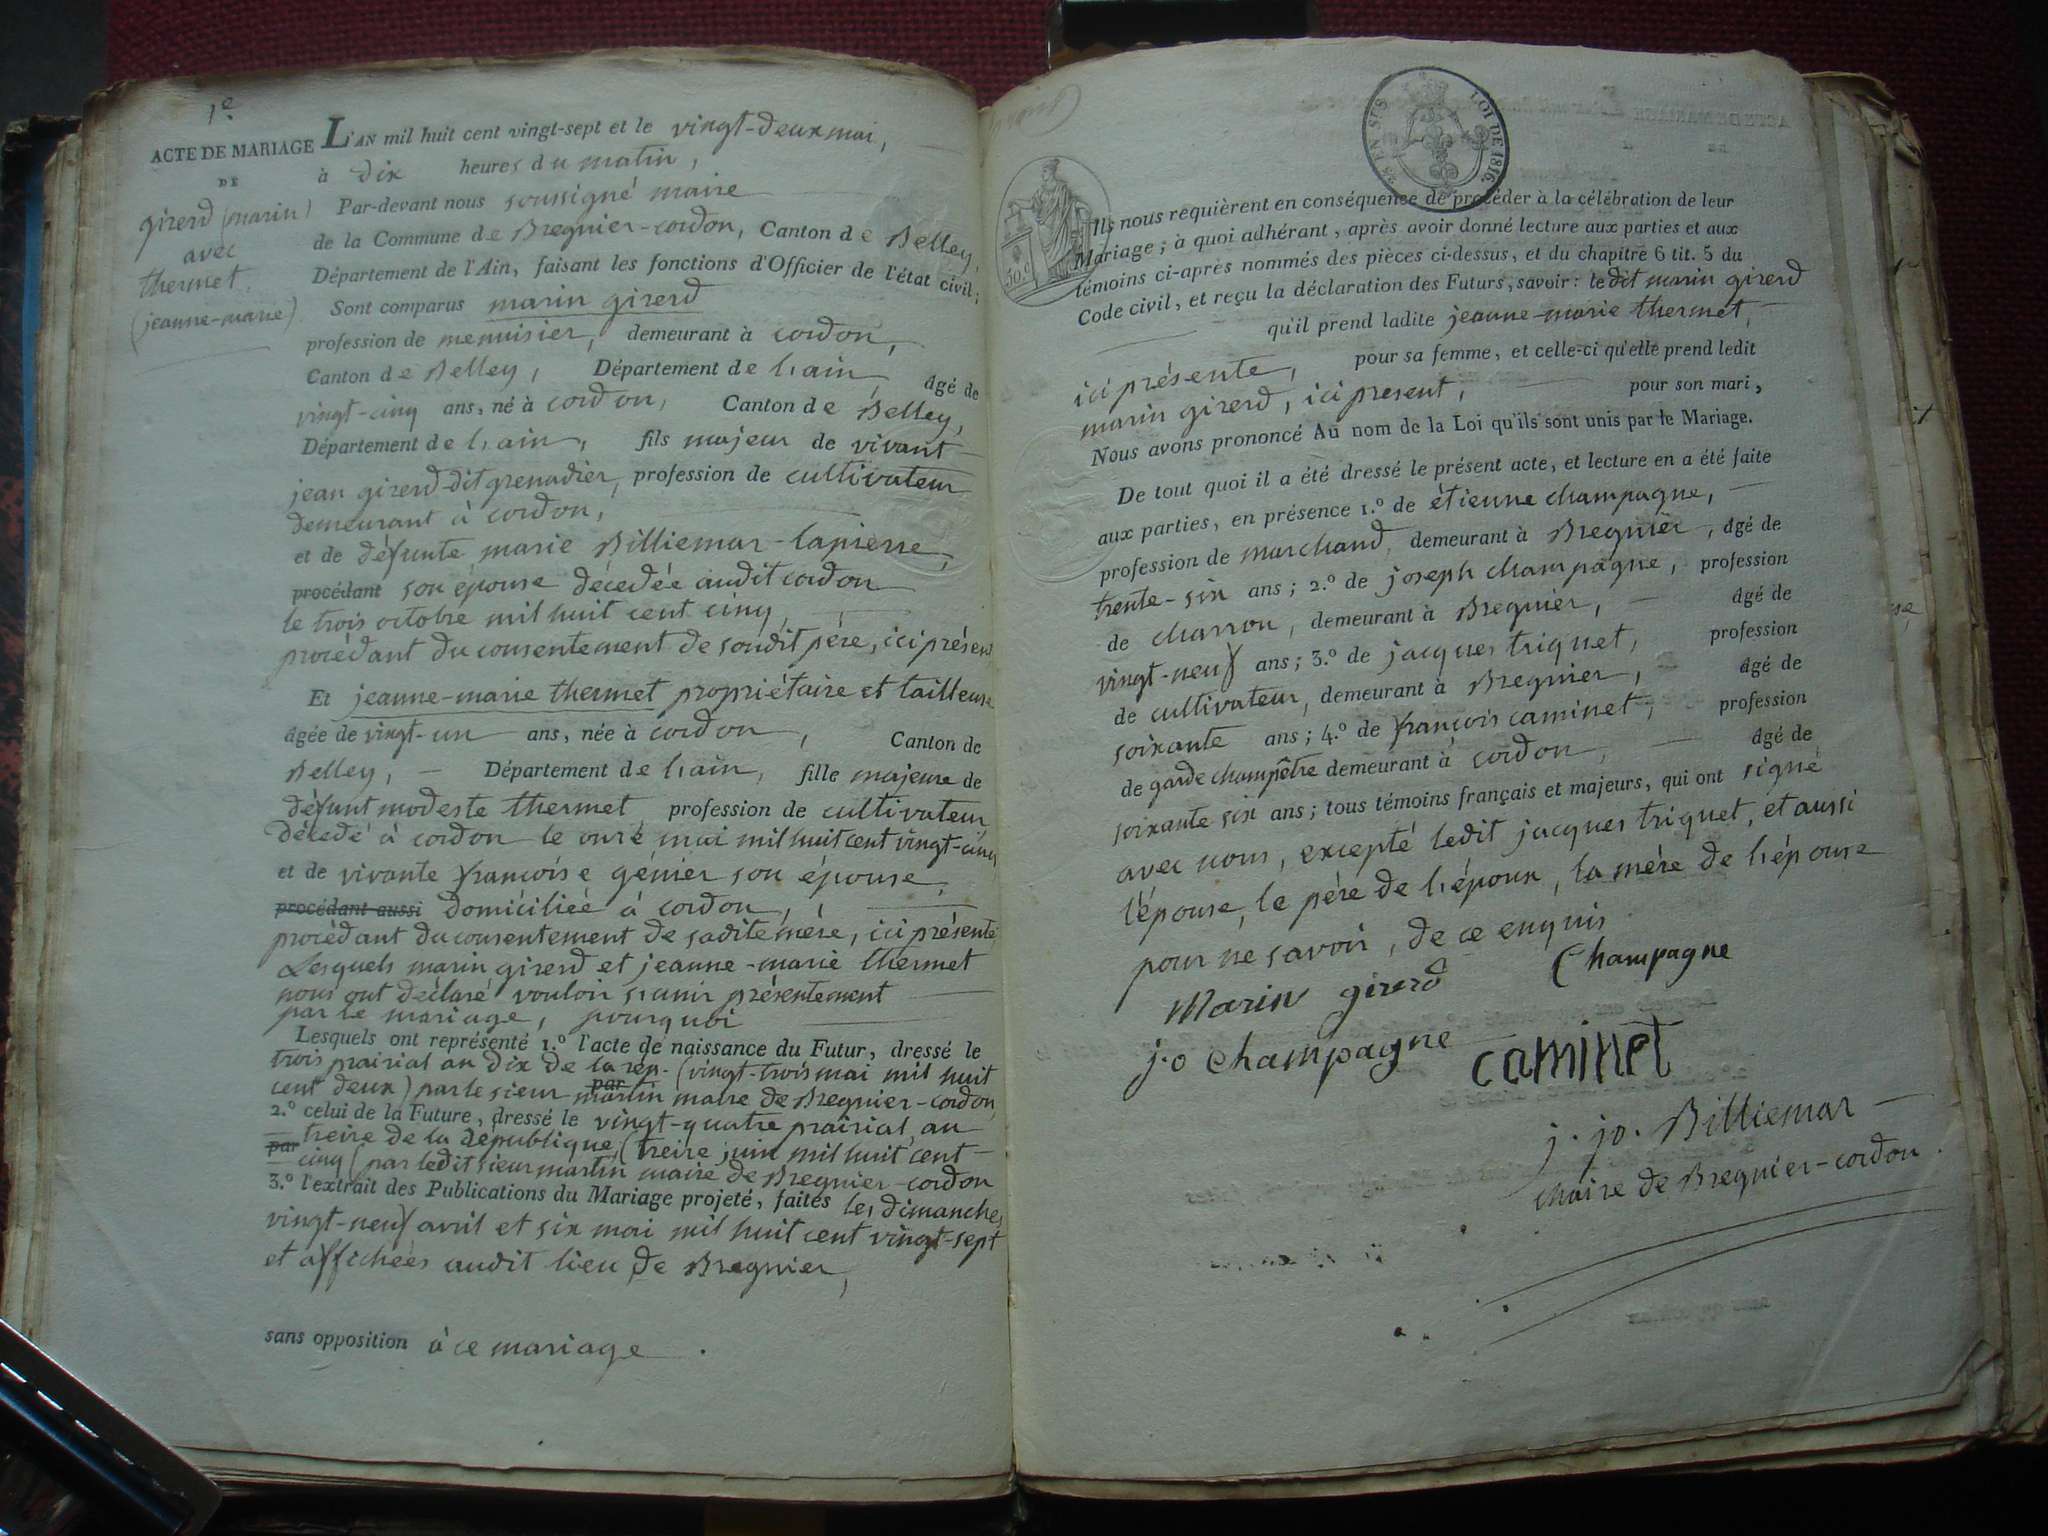 1e.
ACTE DE MARIAGE
DE
girerd (marin)
avec
thermet
(jeanne-marie)
L'AN mil huit cent vingt-sept et le vingt-deux mai,
à dix heures du matin,
Par-devant nous soussigné maire
de la Commune de Bregnier-cordon, Canton de Belley,
Département de l'Ain, faisant les fonctions d'Officier de l'état civil;
Sont comparus marin girerd
profession de menuisier, demeurant à cordon,
Canton de Belley, Département de l'ain, âgé de
vingt-cinq ans, né à cordon, Canton de Belley,
Département de l'ain, fils majeur de vivant
jean girerd-dit grenadier, profession de cultivateur
demeurant à cordon,
et de défunte marie Billiemar-lapierre,
procédant son épouse décedée audit cordon
le trois octobre mil huit cent cinq,
procédant du consentement de sondit père, ici présent
Et jeanne-marie thermet propriétaire et tailleuse
âgée de vingt-un ans, née à cordon, Canton de
Belley, Département de l'ain, fille majeure de
défunt modeste thermet, profession de cultivateur,
décedé à cordon le onze mai mil huit cent vingt-cinq
et de vivante françoise génier son épouse,
procédant aussi domiciliée à cordon,
procédant du consentement de sadite mère, ici présente
Lesquels marin girerd et jeanne-marie thermet
nous ont déclaré vouloir s'unir présentement
par le mariage, pourquoi
Lesquels ont représenté 1.º l'acte de naissance du Futur, dressé le
trois prairial an dix de la rép. (vingt-trois mai mil huit
cent deux) par le sieur par martin maire de Bregnier-cordon
2.º celui de la Future, dressé le vingt-quatre prairial, an
treize de la république, (treize juin mil huit cent
par cinq (par ledit sieur martin maire de Bregnier-cordon
3.º l'extrait des Publications du Mariage projeté, faites les dimanches
vingt-neuf avril et six mai mil huit cent vingt-sept
et affichées audit lieu de Bregnier,
sans opposition à ce mariage.
LOI DE 1816.
50 c
Ils nous requièrent en conséquence de procéder à la célébration de leur
Mariage; à quoi adhérant, après avoir donné lecture aux parties et aux
témoins ci-après nommés des pièces ci-dessus, et du chapitre 6 tit. 5 du
Code civil, et reçu la déclaration des Futurs, savoir: ledit marin girerd
qu'il prend ladite jeanne-marie thermet,
ici présente, pour sa femme, et celle-ci qu'elle prend ledit
marin girerd, ici present, pour son mari,
Nous avons prononcé Au nom de la Loi qu'ils sont unis par le Mariage.
De tout quoi il a été dressé le présent acte, et lecture en a été faite
aux parties, en présence 1.º de étienne champagne,
profession de marchand, demeurant à Bregnier, âgé de
trente-six ans; 2.º de joseph champagne, profession
de charron, demeurant à Bregnier, âgé de
vingt-neuf ans; 3.º de jacques triquet, profession
de cultivateur, demeurant à Bregnier, âgé de
soixante ans; 4.º de françois caminet, profession
de garde champêtre demeurant à cordon, âgé de
soixante six ans; tous témoins français et majeurs, qui ont signé
avec nous, excepté ledit jacques triquet, et aussi
l'épouse, le père de l'époux, la mère de l'épouse
pour ne savoir, de ce enquis
Marin girerd
Champagne
j.o champagne
caminet
j. jo. Billiemar
maire de Bregnier-cordon.